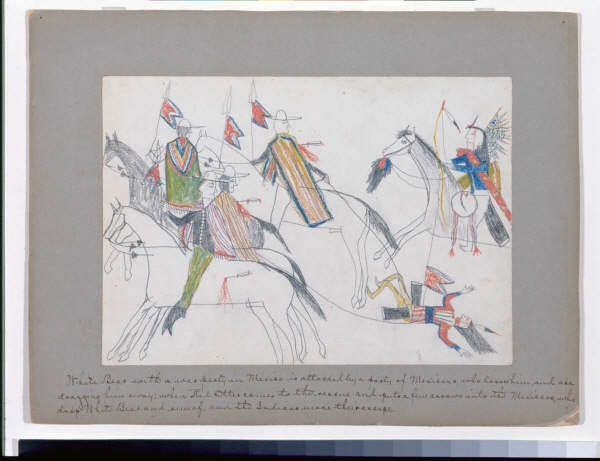 White Bear with a war party in Mexico is attacked by a party of Mexicans, who lasso him and are
dragging him away; when Red Otter comes to the rescue and puts a few arrows into the Mexicans, who
drop White Bear and run off and the Indians make their escape